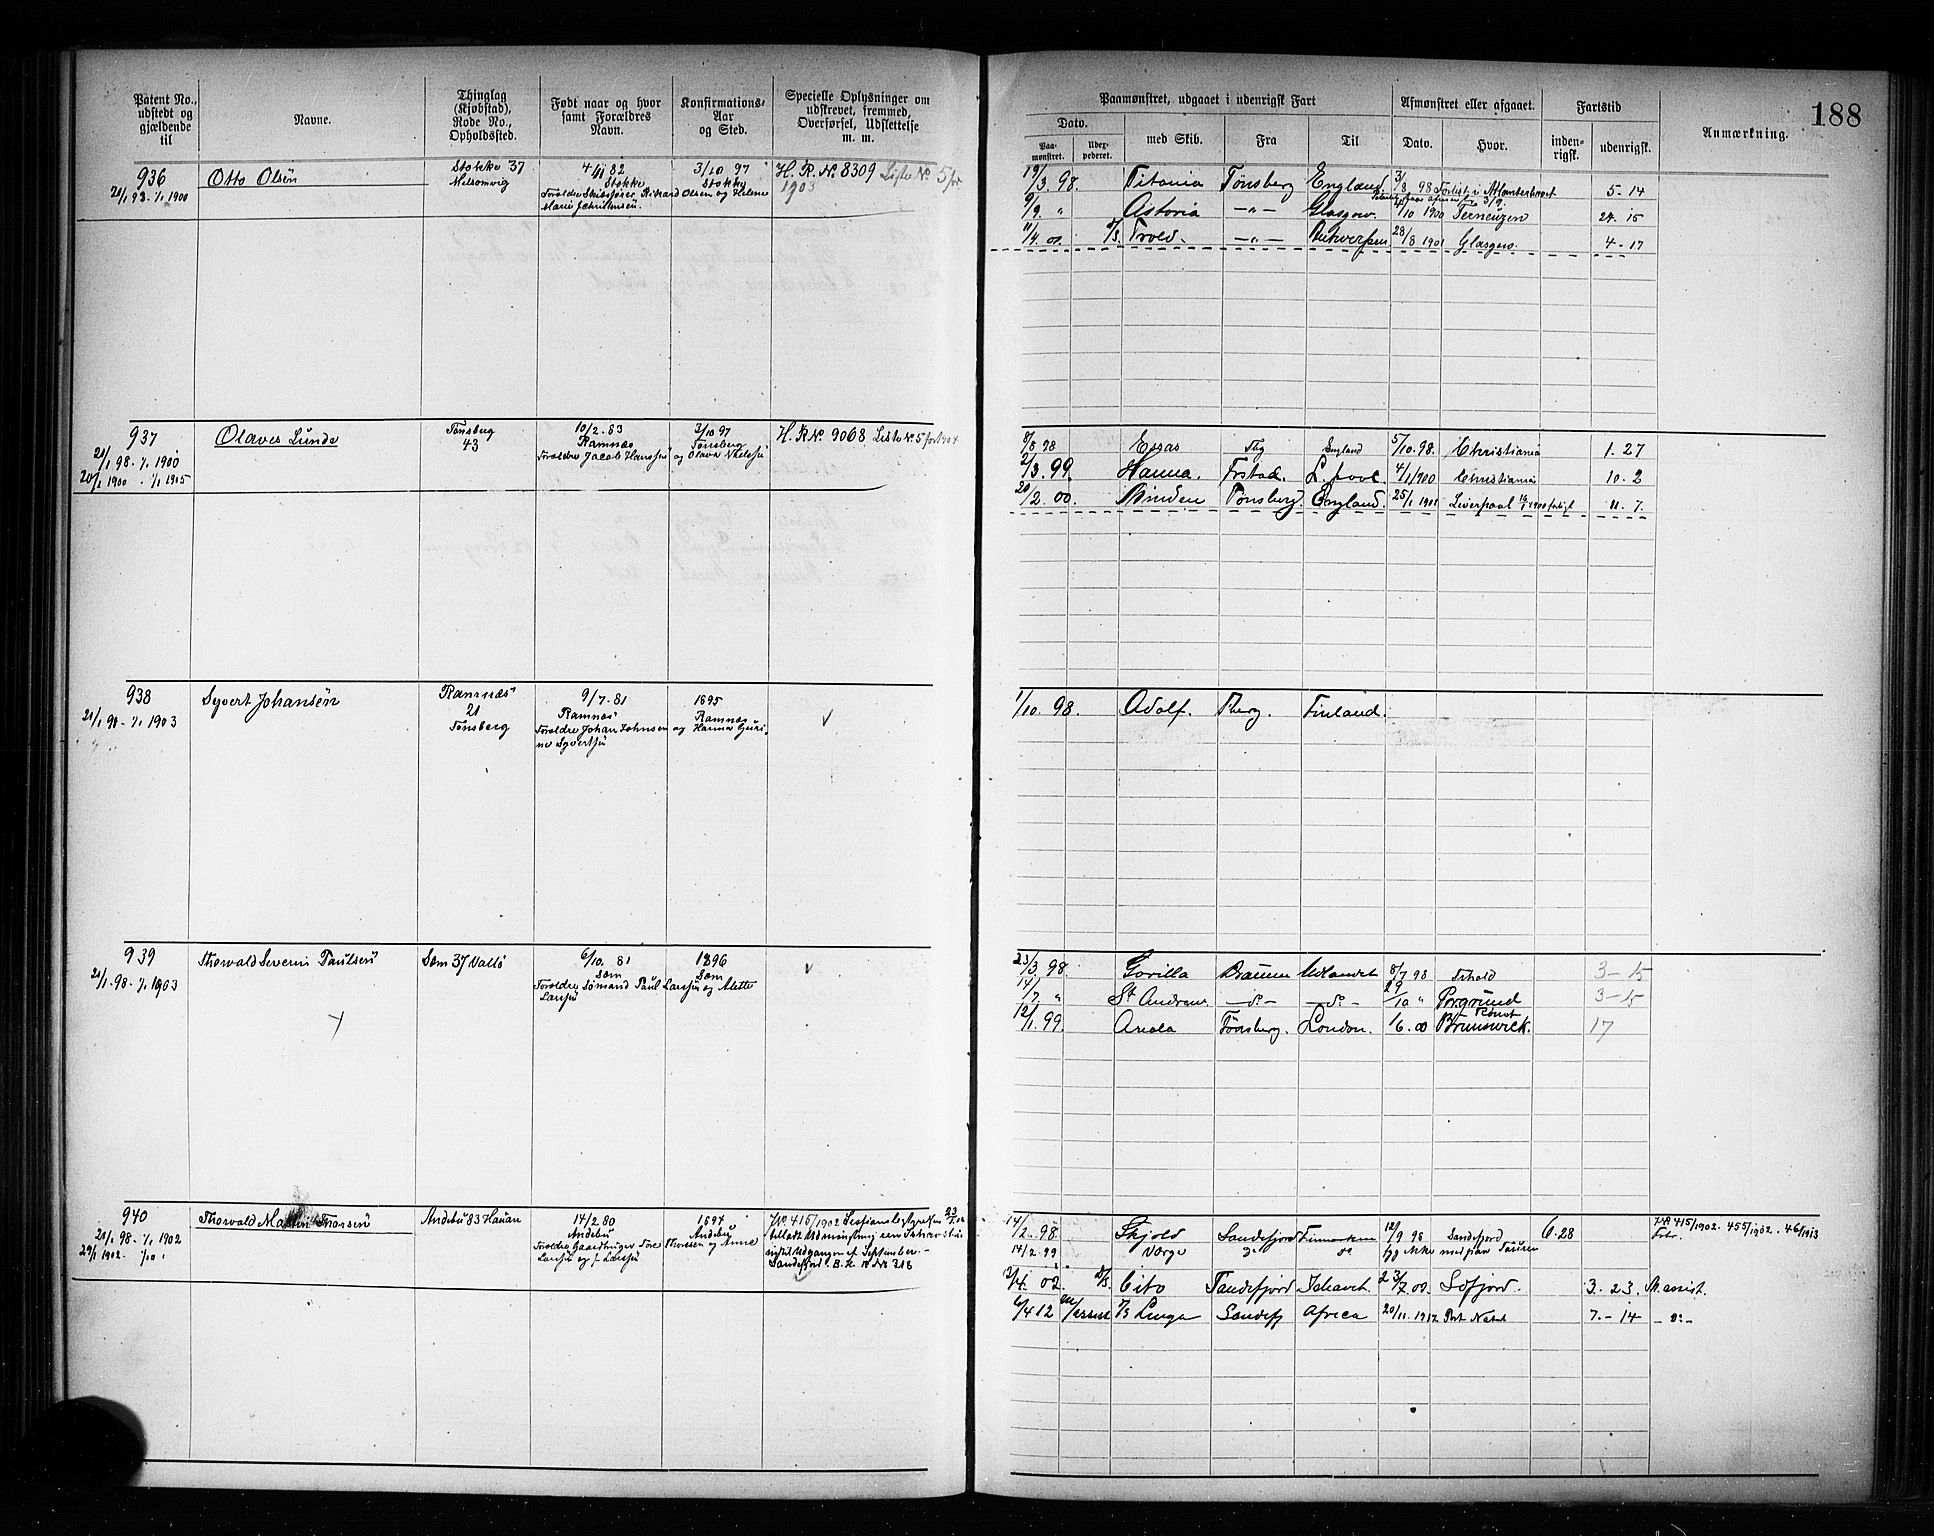 Patent No.,
udstedt og
gjældende
til
Navne.
Thinglag
(Kjøbstad),
Rode No.,
Opholdssted.
Født naar og hvor
samt Forældres
Navn.
Konfirmations-
Aar
og Sted.
Specielle Oplysninger om
udskrevet, fremmed,
Overførsel, Udslettelse
m. m.
936
21/1 98 - 1/1 1900
Otto Olsen
Stokke 37
Melsomvig
82
Stokke
Forældre Skibsfører Rikard Olsen og Helene
Marie
3/10 97
Stokke
H. R. No 8309 Liste No 5 for
1903
937
21/1 98 - 1/1 1900
1900 - 1/1 1905
Olaves Lunde
Tønsberg
43
10/2 - 83
Ramnæs
Forældre Jacob Hanssen og Olava
3/10 97
Tønsberg
H. R No 9068 Liste No 5 for 1904
938
21/1 98 - 1/1 1903
Syvert Johansen
Ramnæs
21
Tønsberg
9/7 - 81
Ramnæs
Forældre Johan Johnsen og Hanna
1895
Ramnæs
939
21/1 - 98 - 1/1 1903
Thorvald Severin Paulsen
Sem 37 Vallø
6/10 81
Sem
Forældre Sømand Paul Larssen og Alette
Larssen
1896
Sem
940
21/1 98 - 1/1 1902
Thorvald Thorsen
Andebu 83
14/2 80
Andebu
Forældre Gaardbruger Tore
Thoresen og Anne
1894
Andebu
415/1902
Utgangen af September
Sandefjord
188
Paamønstret, udgaaet i udenrigsk Fart
Afmønstret eller afgaaet.
Fartstid
Anmærkning.
Dato.
Paa-
mønstret.
Udex-
pederet.
med Skib.
Fra
Til
Dato.
Hvor.
inden-
rigsk.
udenrigsk.
19/3 98. Titania Tønsberg England 3/8 98 Forlist i Atlanterhavet 5 - 14
9/9 " Astoria - " - Glasgow. 4/10 1900 Terneuzen 24. 15
11/4 01 D/S - " - Antwerpen 28/8 1901 Glasgow. 4 - 17
8/8 98 Tbg England 5/10 - 98. Christiania 1. 27
2/3. 99. Hanna. Frstad. L.pool. 4/1 1900 Christiania 10. 2
20/2. 00. Minden Tønsberg. England. 25/1 1901 Liverpool 11. 7.
1/10. 98. Adolf. Tberg. Finland.
23/3. 98. Gorilla Udlandet 8/7 98 3 - 15
14/7. " St Andrews - do - - do - 29/10 " Porsgrund 3 - 15
12/1. 99 Areola Tønsberg. London. 1/6. 00 Brunswick. 17
14/2. 98. Skjold Sandefjord Finmarken 12/9 98 Sandefjord 6. 28
415/1902. 455/1902. 46/1913
14/2 99 Norge do do
3/4. 02. D/S Cito Sandefjord 3. 23. M. assist.
6/4 12 Sandefj Africa 20/11. 1912 Port Natal 7. - 14 - " -